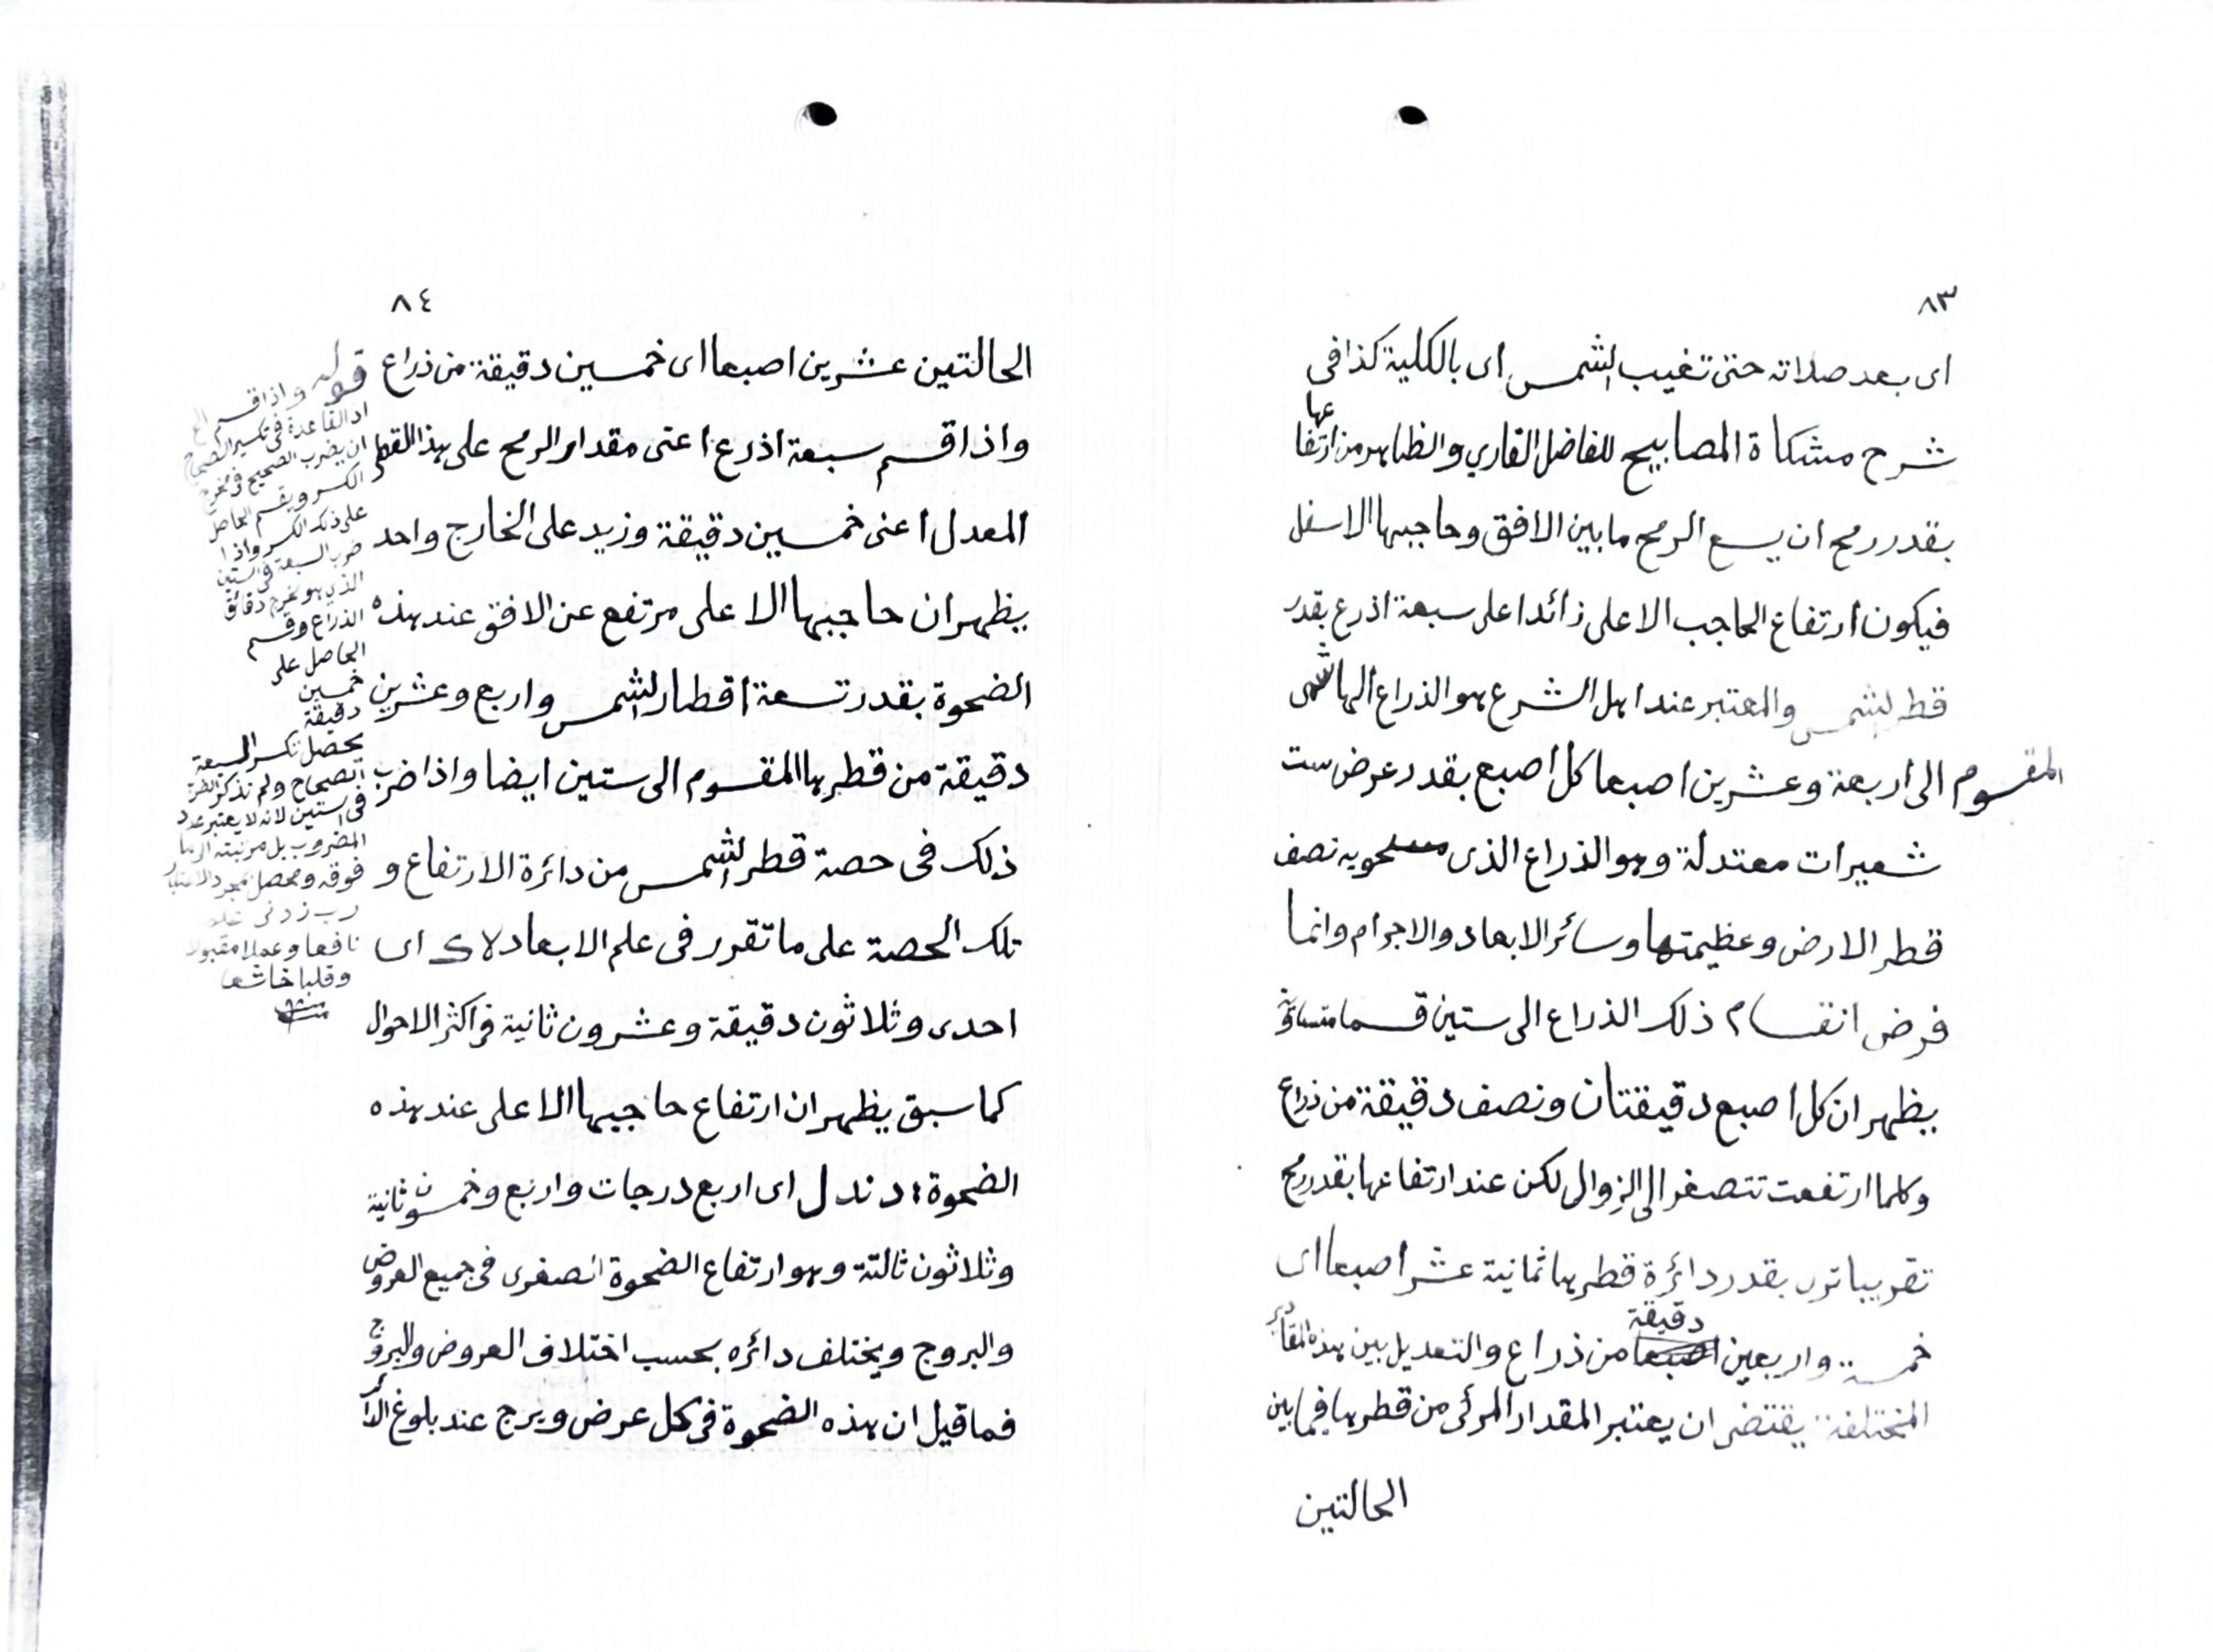 ٨٣
اى بعد صلاته حتى تغيب الشمس اى بالكلية كذا فى
شرح مشكاة المصابيح للفاضل القاري والظاهر من ارتفاعها
بقدر رمح ان يسع الرمح ما بين الافق وحاجبها الاسفل
فيكون ارتفاع الحاجب الاعلى زائدا على سبعة اذرع بقدر
قطر الشمس والمعتبر عند اهل الشرع هو الذراع الهاشمى
المقسوم الى اربعة وعشرين اصبعا كل اصبع بقدر عرض ست
شعيرات معتدلة وهو الذراع الذى يحويه نصف
قطر الارض وعظيمتها وسائر الابعاد والاجرام وانما
فرض انقسام ذلك الذراع الى ستين قسما متساوية
يظهر ان كل اصبع دقيقتان ونصف دقيقة من ذراع
وكلما ارتفعت تتصغر الى الزوال لكن عند ارتفاعها بقدر رمح
تقريبا ترى بقدر دائرة قطرها ثمانية عشر اصبعا اى
خمسة واربعين دقيقة من ذراع والتعديل بين هذه المقادير
المختلفة يقتضى ان يعتبر المقدار المرئى من قطرها فيما بين
الحالتين
٨٤
الحالتين عشرين اصبعا اى خمسين دقيقة من ذراع
واذا قسم سبعة اذرع اعنى مقدار الرمح على هذا القطر
المعدل اعنى خمسين دقيقة وزيد على الخارج واحد
يظهر ان حاجبها الاعلى مرتفع عن الافق عند هذه
الضحوة بقدر تسعة اقطار الشمس واربع وعشرين
دقيقة من قطرها المقسوم الى ستين ايضا واذا ضرب
ذلك فى حصة قطر الشمس من دائرة الارتفاع و
تلك الحصة على ما تقرر فى علم الابعاد لا ك اى
احدى وثلاثون دقيقة وعشرون ثانية فى اكثر الاحوال
كما سبق يظهر ان ارتفاع حاجبها الاعلى عند هذه
الضحوة د ند ل اى اربع درجات واربع وخمسون ثانية
وثلاثون ثالثة وهو ارتفاع الضحوة الصغرى فى جميع العروض
والبروج ويختلف دائره بحسب اختلاف العروض والبروج
فما قيل ان هذه الضحوة فى كل عرض وبرج عند بلوغ الدائر
قوله واذا قسم الخ
اذ القاعدة فى تكسير الصحاح
ان يضرب الصحيح فى مخرج
الكسر ويقسم الحاصل
على ذلك الكسر واذا
ضرب السبعة فى الستين
الذى هو مخرج دقائق
الذراع وقسم
الحاصل على
خمسين
دقيقة
يحصل تكسر السبعة
الصحاح ولم تذكر الضرب
فى الستين لانه لا يعتبر عدد
المضروب بل مرتبته الى ما
فوقه ويحصل بمجرد الاعتبار
رب زدنى علما
نافعا وعملا مقبولا
وقلبا خاشعا
منه